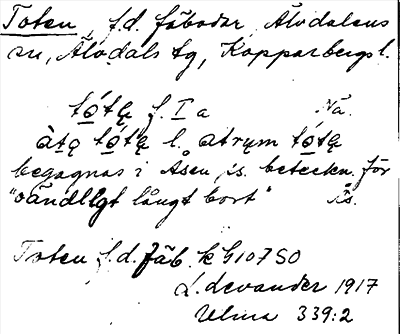 Toten f.d. fäbodar Älvdalens
sn, Älvdals tg, Kopparbergs l.
to̲´tą f. I a Nä.
àtǫ to̲´tą l. åtrųm to̲´tą
begagnas i Åsen, is. beteckn. för
"oändligt långt bort" Ås.
Toten f.d. fäb. k G 107 SO
L. Levander 1917
Ulma 339:2